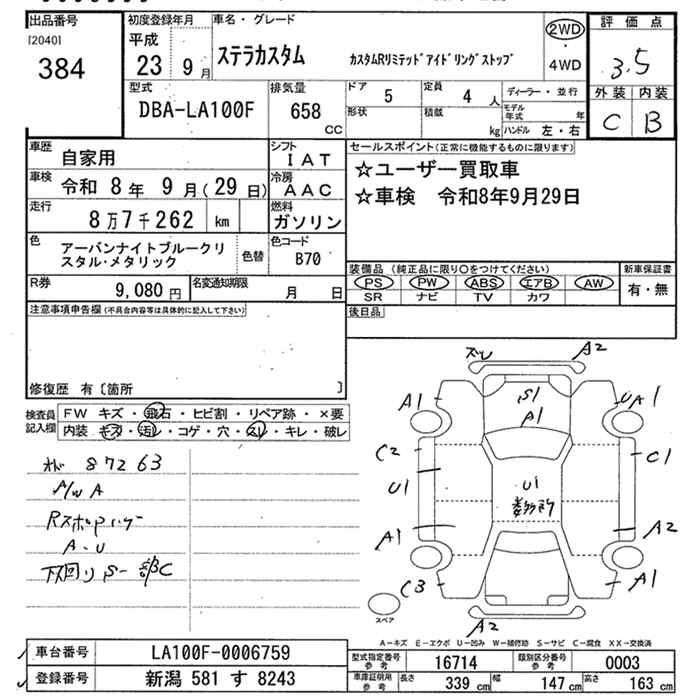 出品番号
[2040]
384
初度登録年月
平成
23 9 月
車名・グレード
ステラカスタム カスタムRリミテッドアイドリングストップ
2WD
・
4WD
評価点
3.5
外装 内装
C B
型式
DBA-LA100F
排気量
658
CC
ドア
5
定員
4 人
形状
積載
kg
ディーラー・並行
モデル年式 年
ハンドル 左・右
車歴 自家用
シフト IAT
車検 令和 8 年 9 月(29 日)
冷房 AAC
走行 8万7千262 km
燃料 ガソリン
色 アーバンナイトブルークリスタル・メタリック
色替
色コード
B70
R券 9,080 円
名変通知期限 月 日
セールスポイント(正常に機能するものに限ります)
☆ユーザー買取車
☆車検 令和8年9月29日
装備品(純正品に限り○をつけてください)
PS PW ABS エアB AW
SR ナビ TV カワ
新車保証書
有・無
後日品
注意事項申告欄(不具合内容等は具体的に記入して下さい)
修復歴 有〔箇所 〕
検査員記入欄
FW キズ・飛石・ヒビ割・リペア跡・×要
内装 キズ・汚レ・コゲ・穴・スレ・キレ・破レ
87263
A/W A
A・U
下回りS 部C
A2
S1
A1
A1
UA1
C2
C1
U1
U1
A1
A2
C3
A1
A2
スペア
A-キズ E-エクボ U-凹み W-補修跡 S-サビ C-腐食 XX-交換済
車台番号 LA100F-0006759
登録番号 新潟 581 す 8243
型式指定番号 参考 16714
類別区分番号 参考 0003
車庫証明用 参考
長さ 339 cm
幅 147 cm
高さ 163 cm